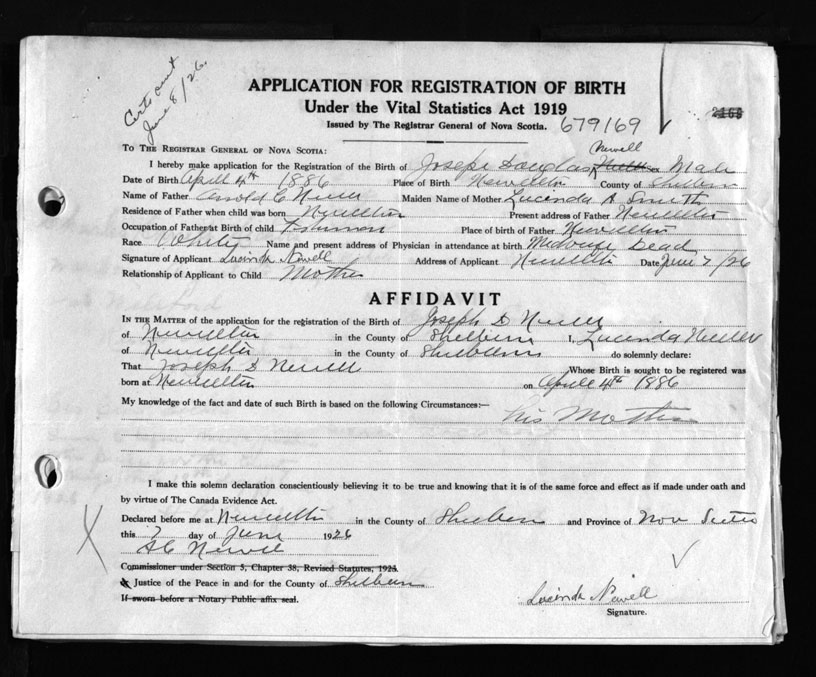 Certs sent
June 8/26.
APPLICATION FOR REGISTRATION OF BIRTH
Under the Vital Statistics Act 1919
Issued by The Registrar General of Nova Scotia. 679169
TO THE REGISTRAR GENERAL OF NOVA SCOTIA:
Newell
I hereby make application for the Registration of the Birth of Joseph Douglas Sex Male
Date of Birth April 4th 1886 Place of Birth Newellton County of Shelburne
Name of Father Arnold C Newell Maiden Name of Mother Lucinda A Smith
Residence of Father when child was born Newellton Present address of Father Newellton
Occupation of Father at Birth of child Fisherman Place of birth of Father Newellton
Race White Name and present address of Physician in attendance at birth Midwife Dead
Signature of Applicant Lucinda Newell Address of Applicant Newellton Date June 7/26
Relationship of Applicant to Child Mother
AFFIDAVIT
IN THE MATTER of the application for the registration of the Birth of Joseph D Newell
of Newellton in the County of Shelburne I, Lucinda Newell
of Newellton in the County of Shelburne do solemnly declare:
That Joseph D Newell Whose Birth is sought to be registered was
born at Newellton on April 4th 1886
My knowledge of the fact and date of such Birth is based on the following Circumstances:—
his Mother
I make this solemn declaration conscientiously believing it to be true and knowing that it is of the same force and effect as if made under oath and
by virtue of The Canada Evidence Act.
Declared before me at Newellton in the County of Shelburne and Province of Nov Scotia
this 7 day of June 1926
A C Newell
Commissioner under Section 5, Chapter 38, Revised Statutes, 1923.
Justice of the Peace in and for the County of Shelburne
If sworn before a Notary Public affix seal.
Lucinda Newell
Signature.